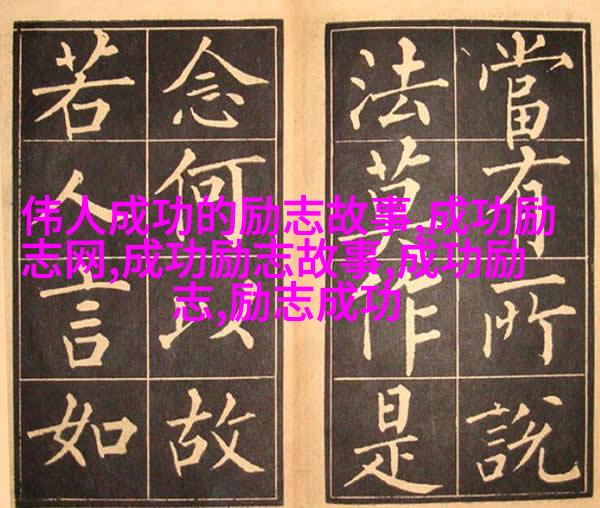 當有所說
法莫作是
念何以故
若人言如
伟人成功的励志故事,成功励
志网,成功励志故事,成功励
志,励志成功